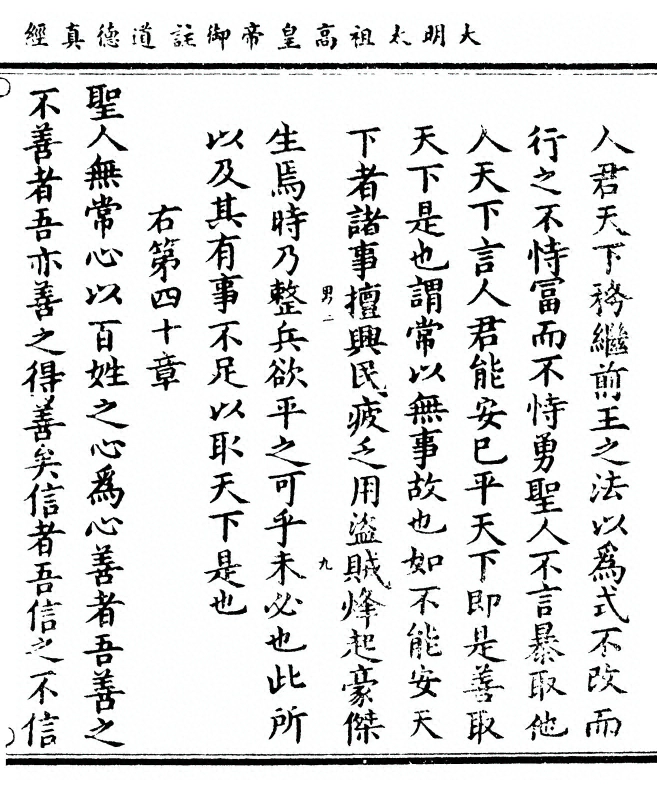 大明太祖高皇帝御註道德真經
人君天下務繼前王之法以為式不改而
行之不恃冨而不恃勇聖人不言暴取他
人天下言人君能安已平天下即是善取
天下是也謂常以無事故也如不能安天
下者諸事擅興民疲乏用盜賊烽起豪傑
男二
九
生焉時乃整兵欲平之可乎未必也此所
以及其有事不足以取天下是也
右第四十章
聖人無常心以百姓之心為心善者吾善之
不善者吾亦善之得善矣信者吾信之不信